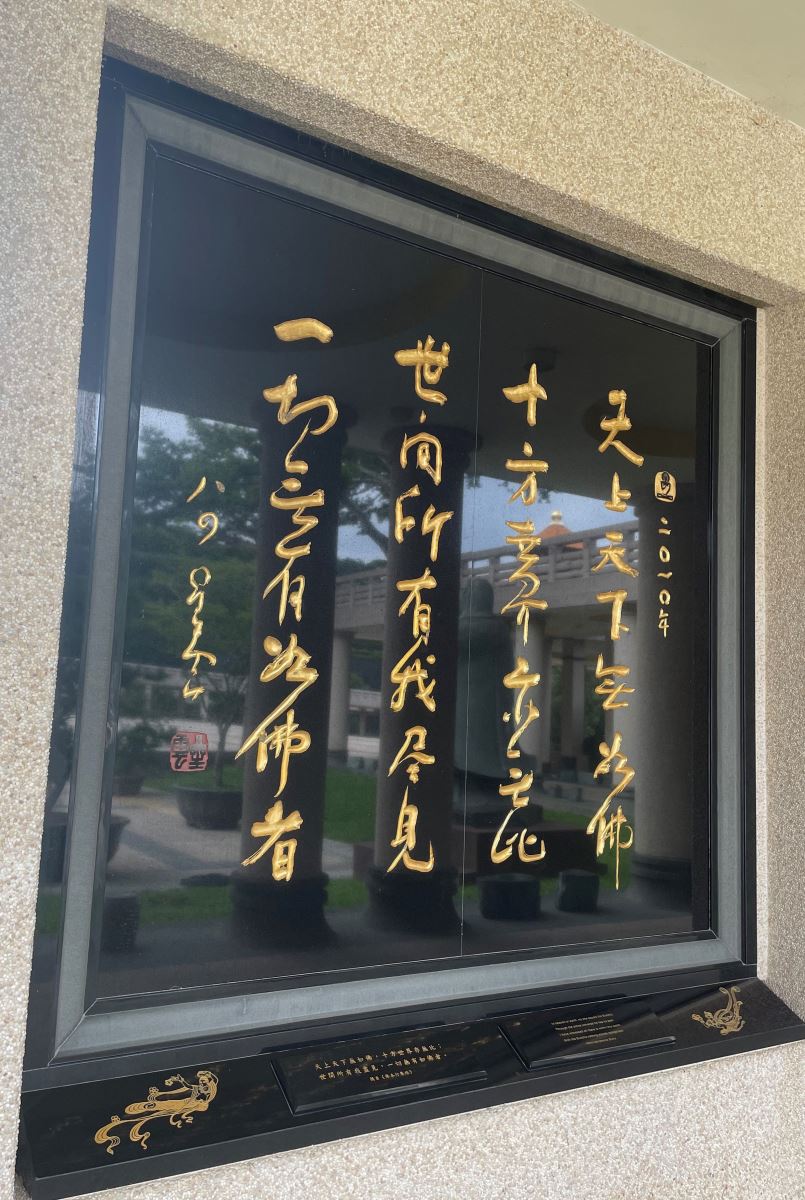 二〇一〇年
天上天下無如佛
十方世界亦无比
世间所有我尽見
一切無有如佛者
八四 星雲
天上天下無如佛，十方世界亦無比；
世間所有我盡見，一切無有如佛者。